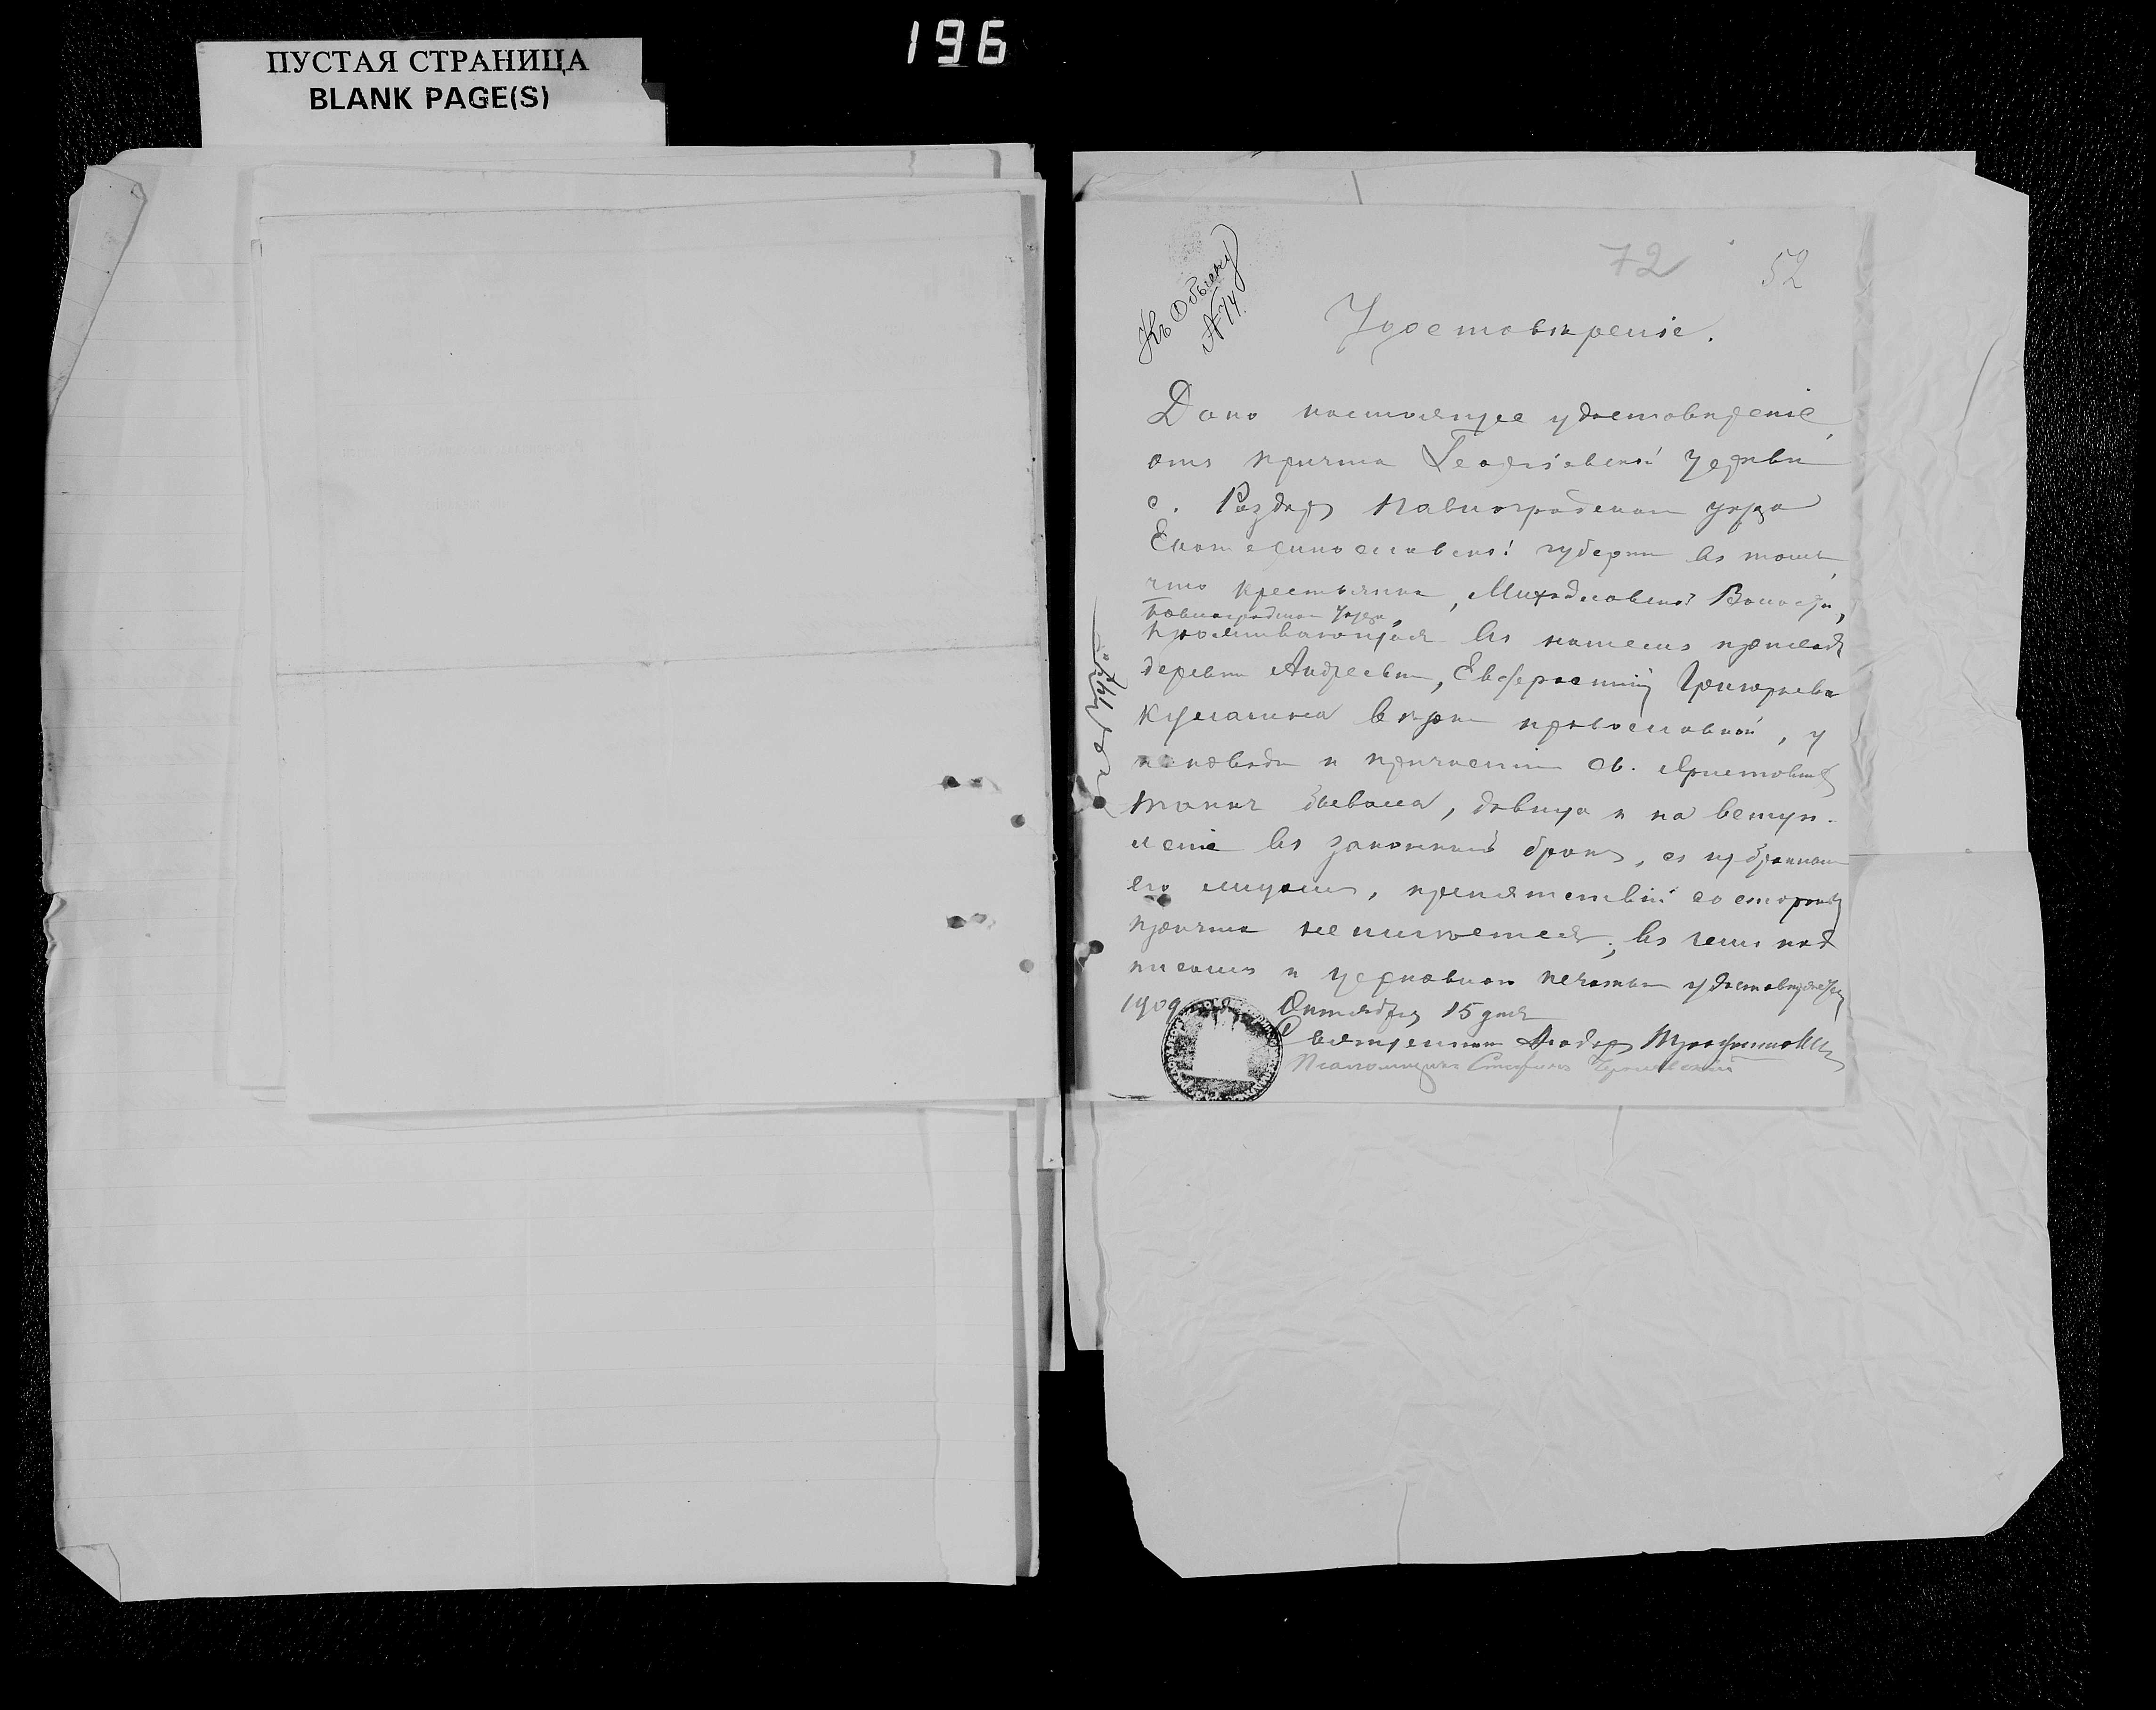 196
ПУСТАЯ СТРАНИЦА
BLANK PAGE(S)
72 52
Къ Обыску
№ 74.
Удостовѣреніе.
Дано настоящее удостовѣреніе,
отъ причта Георгіевской церкви
с. Раздоръ Павлоградскаго уѣзда
Екатеринославской губерніи въ томъ,
что крестьянка, Волости,
Павлоградскаго Уѣзда,
проживающая въ нашемъ приходѣ
деревни Андреевки, Григорьева
вѣры православной, у
исповѣди и причастія Св. Христовыхъ
Таинъ бывала, дѣвица и на вступ-
леніе въ законный бракъ, съ избраннымъ
ею лицомъ, препятствій со стороны
причта не имѣется; въ чемъ под
писомъ и церковною печатью удостовѣряется
1909 года Октября 15 дня
Священникъ
Псаломщикъ Стефанъ